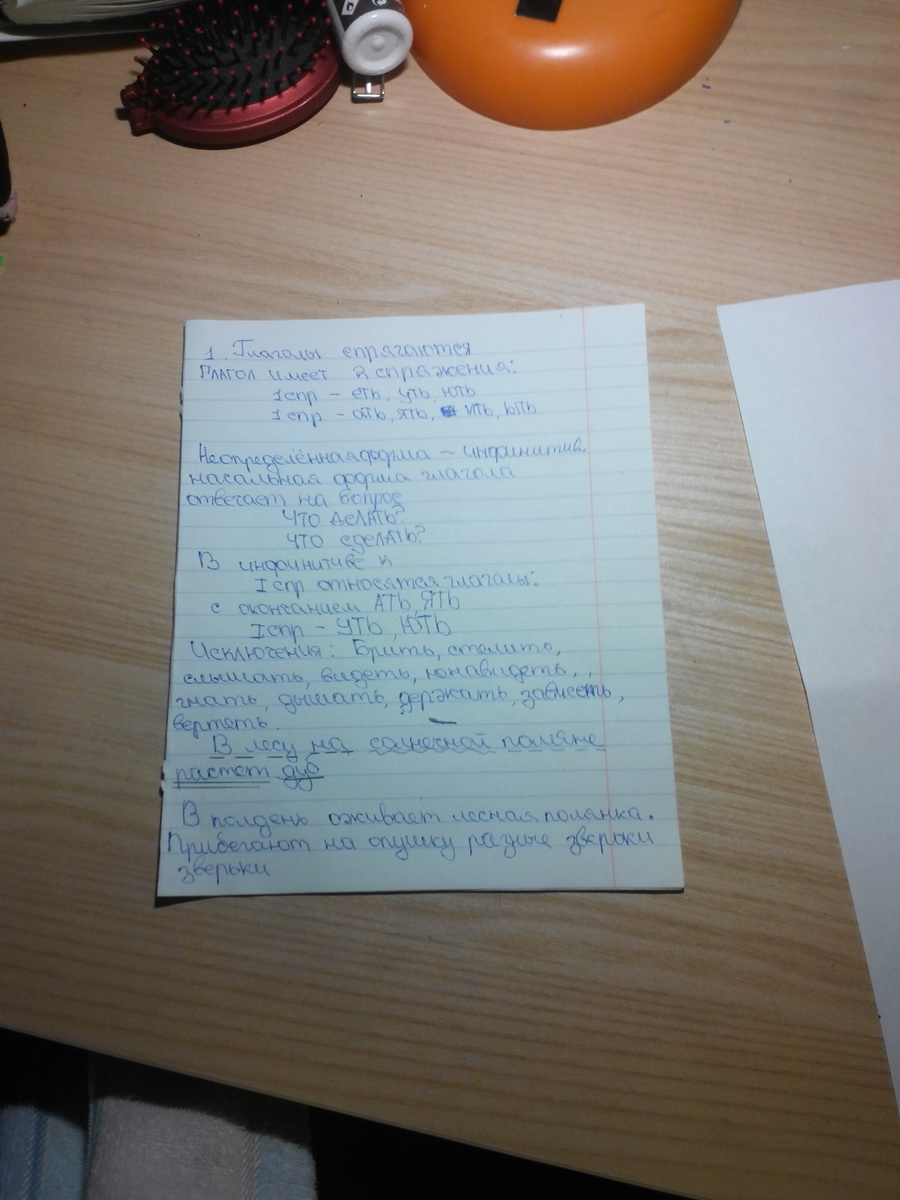 1. Глаголы спрягаются
Глагол имеет 2 спряжения:
1 спр – еть, уть, ють
1 спр – ать, ять, ить, ыть
Неопределённая форма – инфинитив.
начальная форма глагола
отвечает на вопрос
что делать?
что сделать?
В инфинитиве к
I спр относятся глаголы:
с окончанием АТЬ, ЯТЬ
I спр – УТЬ, ЮТЬ
Исключения: Брить, стелить,
слышать, видеть, ненавидеть, ,
гнать, дышать, держать, зависеть,
вертеть.
В лесу на солнечной поляне
растет дуб
В полдень оживает лесная полянка.
Прибегают на опушку разные зверьки
зверьки